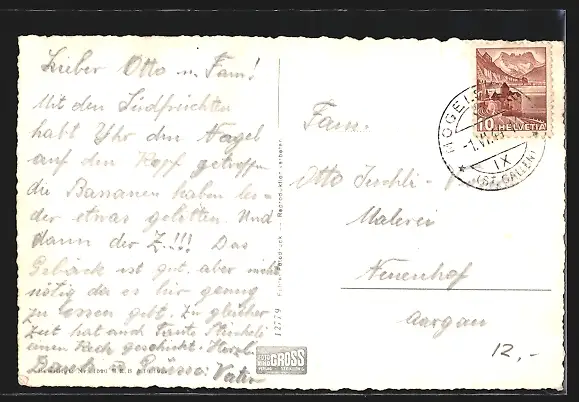 Lieber Otto u. Fam!
Mit den Südfrüchten
habt Yhr den Nagel
auf den Kopf getroffen
die Bananen haben
der etwas gelitten. Und
dann der Z.!!! Das
Gebäck ist gut, aber nicht
nötig da es hier genug
zu essen gibt. Zu gleicher
Zeit hat auch Tante
einen geschickt. Herzl.
Dank u Grüsse: Vater
Fam.
Otto
Malerei
Neuenhof
Aargau
12,-
10 HELVETIA
IX
(ST. GALLEN)
12779
FOTO GROSS